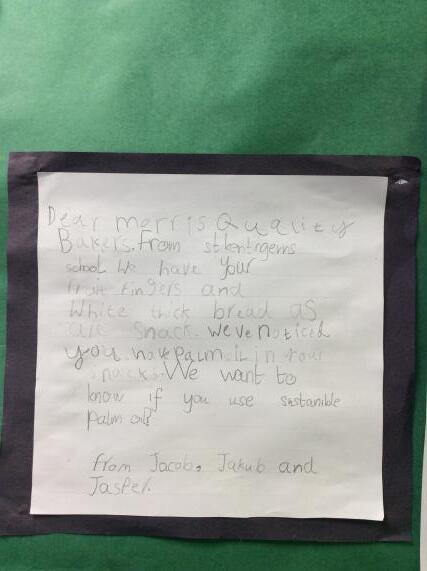 Dear morris Quality
Bakers. From st kentigerns
school We have your
fruit fingers and
White thick bread as
are snack. weve noticed
you have palm oil in your
snacks. We want to
know if you use sustanible
palm oil?
from Jacob, Jakub and
Jasper.